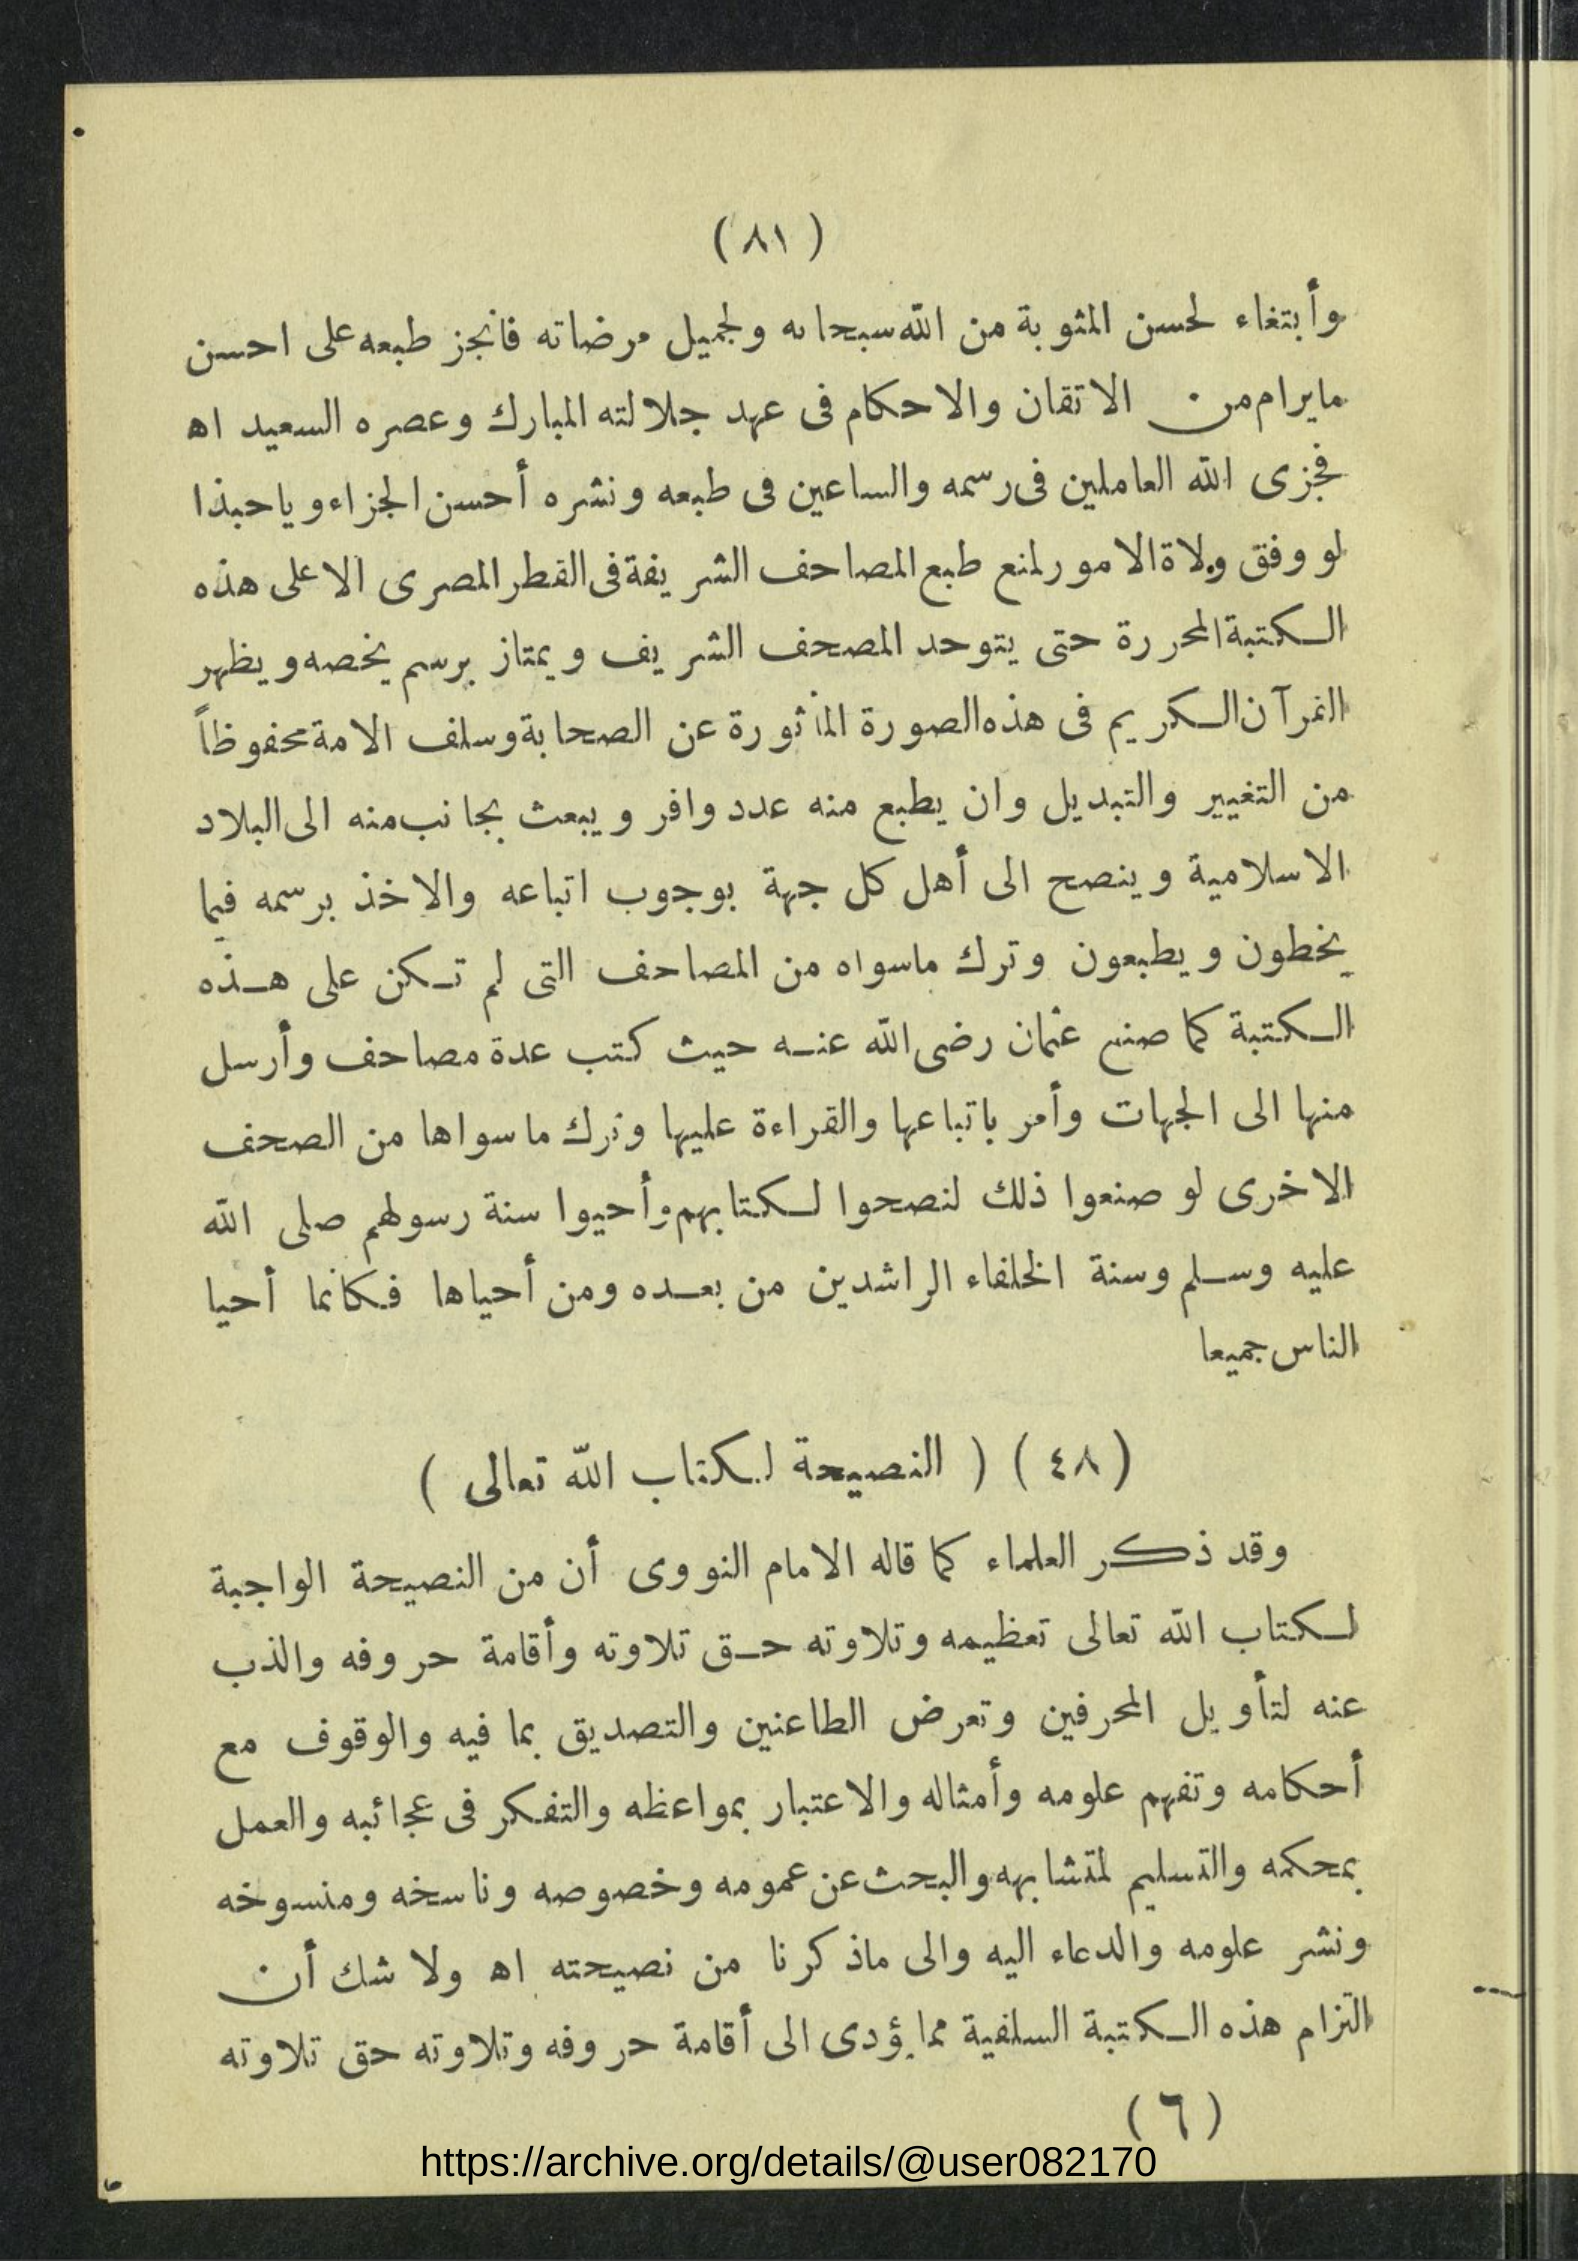 ( ٨١ )
وأبتغاء لحسن المثوبة من الله سبحانه ولجميل مرضاته فانجز طبعه على احسن
مايرام من الاتقان والاحكام فى عهد جلالته المبارك وعصره السعيد اه
فجزى الله العاملين فى رسمه والساعين فى طبعه ونشره أحسن الجزاء وياحبذا
لو وفق ولاة الامور لمنع طبع المصاحف الشريفة فى القطر المصرى الا على هذه
الكتبة المحررة حتى يتوحد المصحف الشريف ويمتاز برسم يخصه ويظهر
القرآن الكريم فى هذه الصورة المأثورة عن الصحابة وسلف الامة محفوظاً
من التغيير والتبديل وان يطبع منه عدد وافر ويبعث بجانب منه الى البلاد
الاسلامية وينصح الى أهل كل جهة بوجوب اتباعه والاخذ برسمه فيما
يخطون ويطبعون وترك ماسواه من المصاحف التى لم تكن على هذه
الكتبة كما صنع عثمان رضى الله عنه حيث كتب عدة مصاحف وأرسل
منها الى الجهات وأمر باتباعها والقراءة عليها وترك ماسواها من الصحف
الاخرى لو صنعوا ذلك لنصحوا لكتابهم وأحيوا سنة رسولهم صلى الله
عليه وسلم وسنة الخلفاء الراشدين من بعده ومن أحياها فكانما أحيا
الناس جميعا
( ٤٨ ) ( النصيحة لكتاب الله تعالى )
وقد ذكر العلماء كما قاله الامام النووى أن من النصيحة الواجبة
لكتاب الله تعالى تعظيمه وتلاوته حق تلاوته وأقامة حروفه والذب
عنه لتأويل المحرفين وتعرض الطاعنين والتصديق بما فيه والوقوف مع
أحكامه وتفهم علومه وأمثاله والاعتبار بمواعظه والتفكر فى عجائبه والعمل
بمحكمه والتسليم لمتشابهه والبحث عن عمومه وخصوصه وناسخه ومنسوخه
ونشر علومه والدعاء اليه والى ماذكرنا من نصيحته اه ولا شك أن
التزام هذه الكتبة السلفية مما يؤدى الى أقامة حروفه وتلاوته حق تلاوته
( ٦ )
https://archive.org/details/@user082170